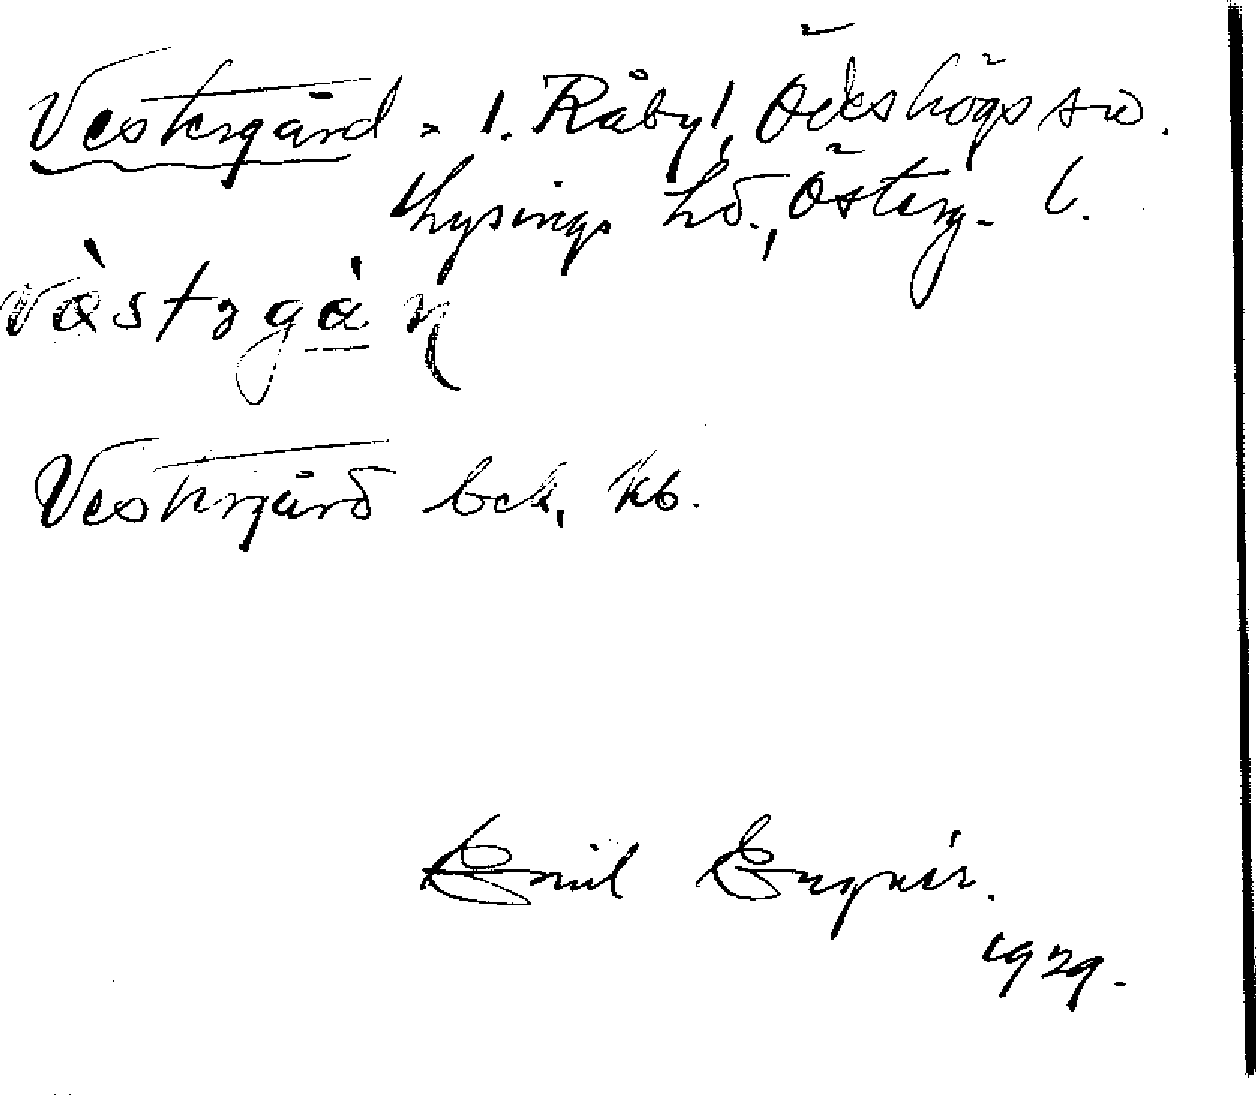 Vestergård. 1. Råby, Ödeshögs sn.
Lysings hd., Österg. l.
vàstrgà
Vestergård bck, kb.
Emil Engnér.
1929.